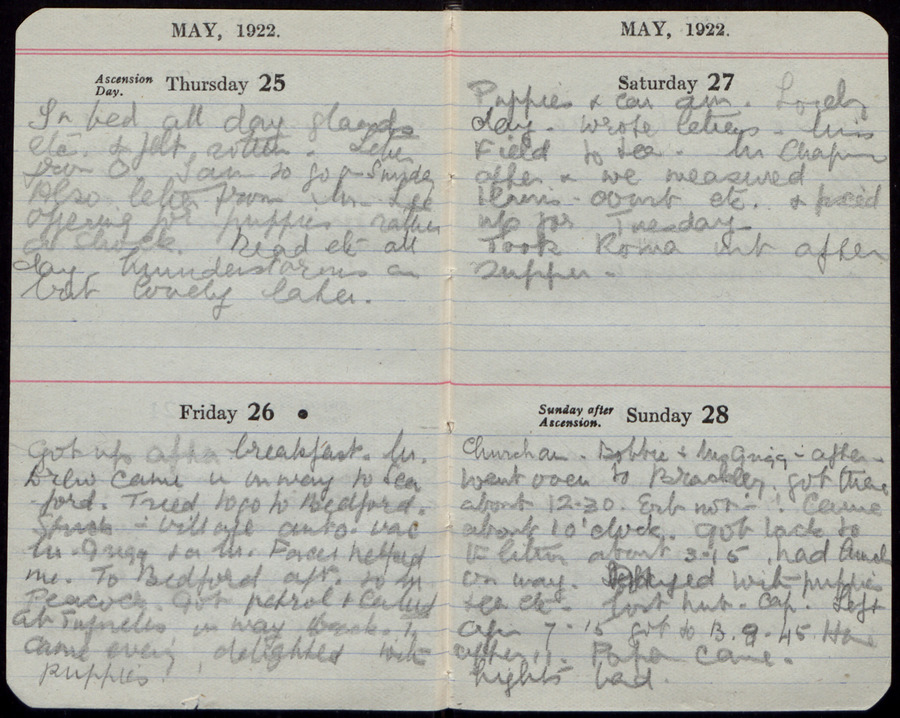 MAY, 1922.
Ascension Day. Thursday 25
In bed all day glands
etc. & felt rotten. Letter
from O. I am to go
Also letter from Mr.
offering for puppies rather
a shock. Read etc all
day. Thunderstorms am
but lovely later.
Friday 26
Got up after breakfast. Mr.
Drew came in on way to
ford. Tried to go to Bedford.
Stuck in village auto. vac
Mr. Grigg & a Mr. helped
me. To Bedford aft. to
Peacock. Got petrol & called
at on way back.
came even'g delighted with
puppies!
MAY, 1922.
Saturday 27
Puppies & car am. Lovely
day. Wrote letters. Miss
Field to tea. Mr Chapman
after & we measured
tennis-court etc. & fixed
up for Tuesday.
Took Roma out after
supper.
Sunday after Ascension. Sunday 28
Church am. Bobbie & Mrs Grigg - after
went over to got there
about 12-30. but not! Came
about 1 o'clock. Got back to
about 3-15, had lunch
on way. Played with puppies
tea etc. lost hub-cap. Left
again 7-15 got to B. 9-45. Home
after 11. Papa came.
lights bad.